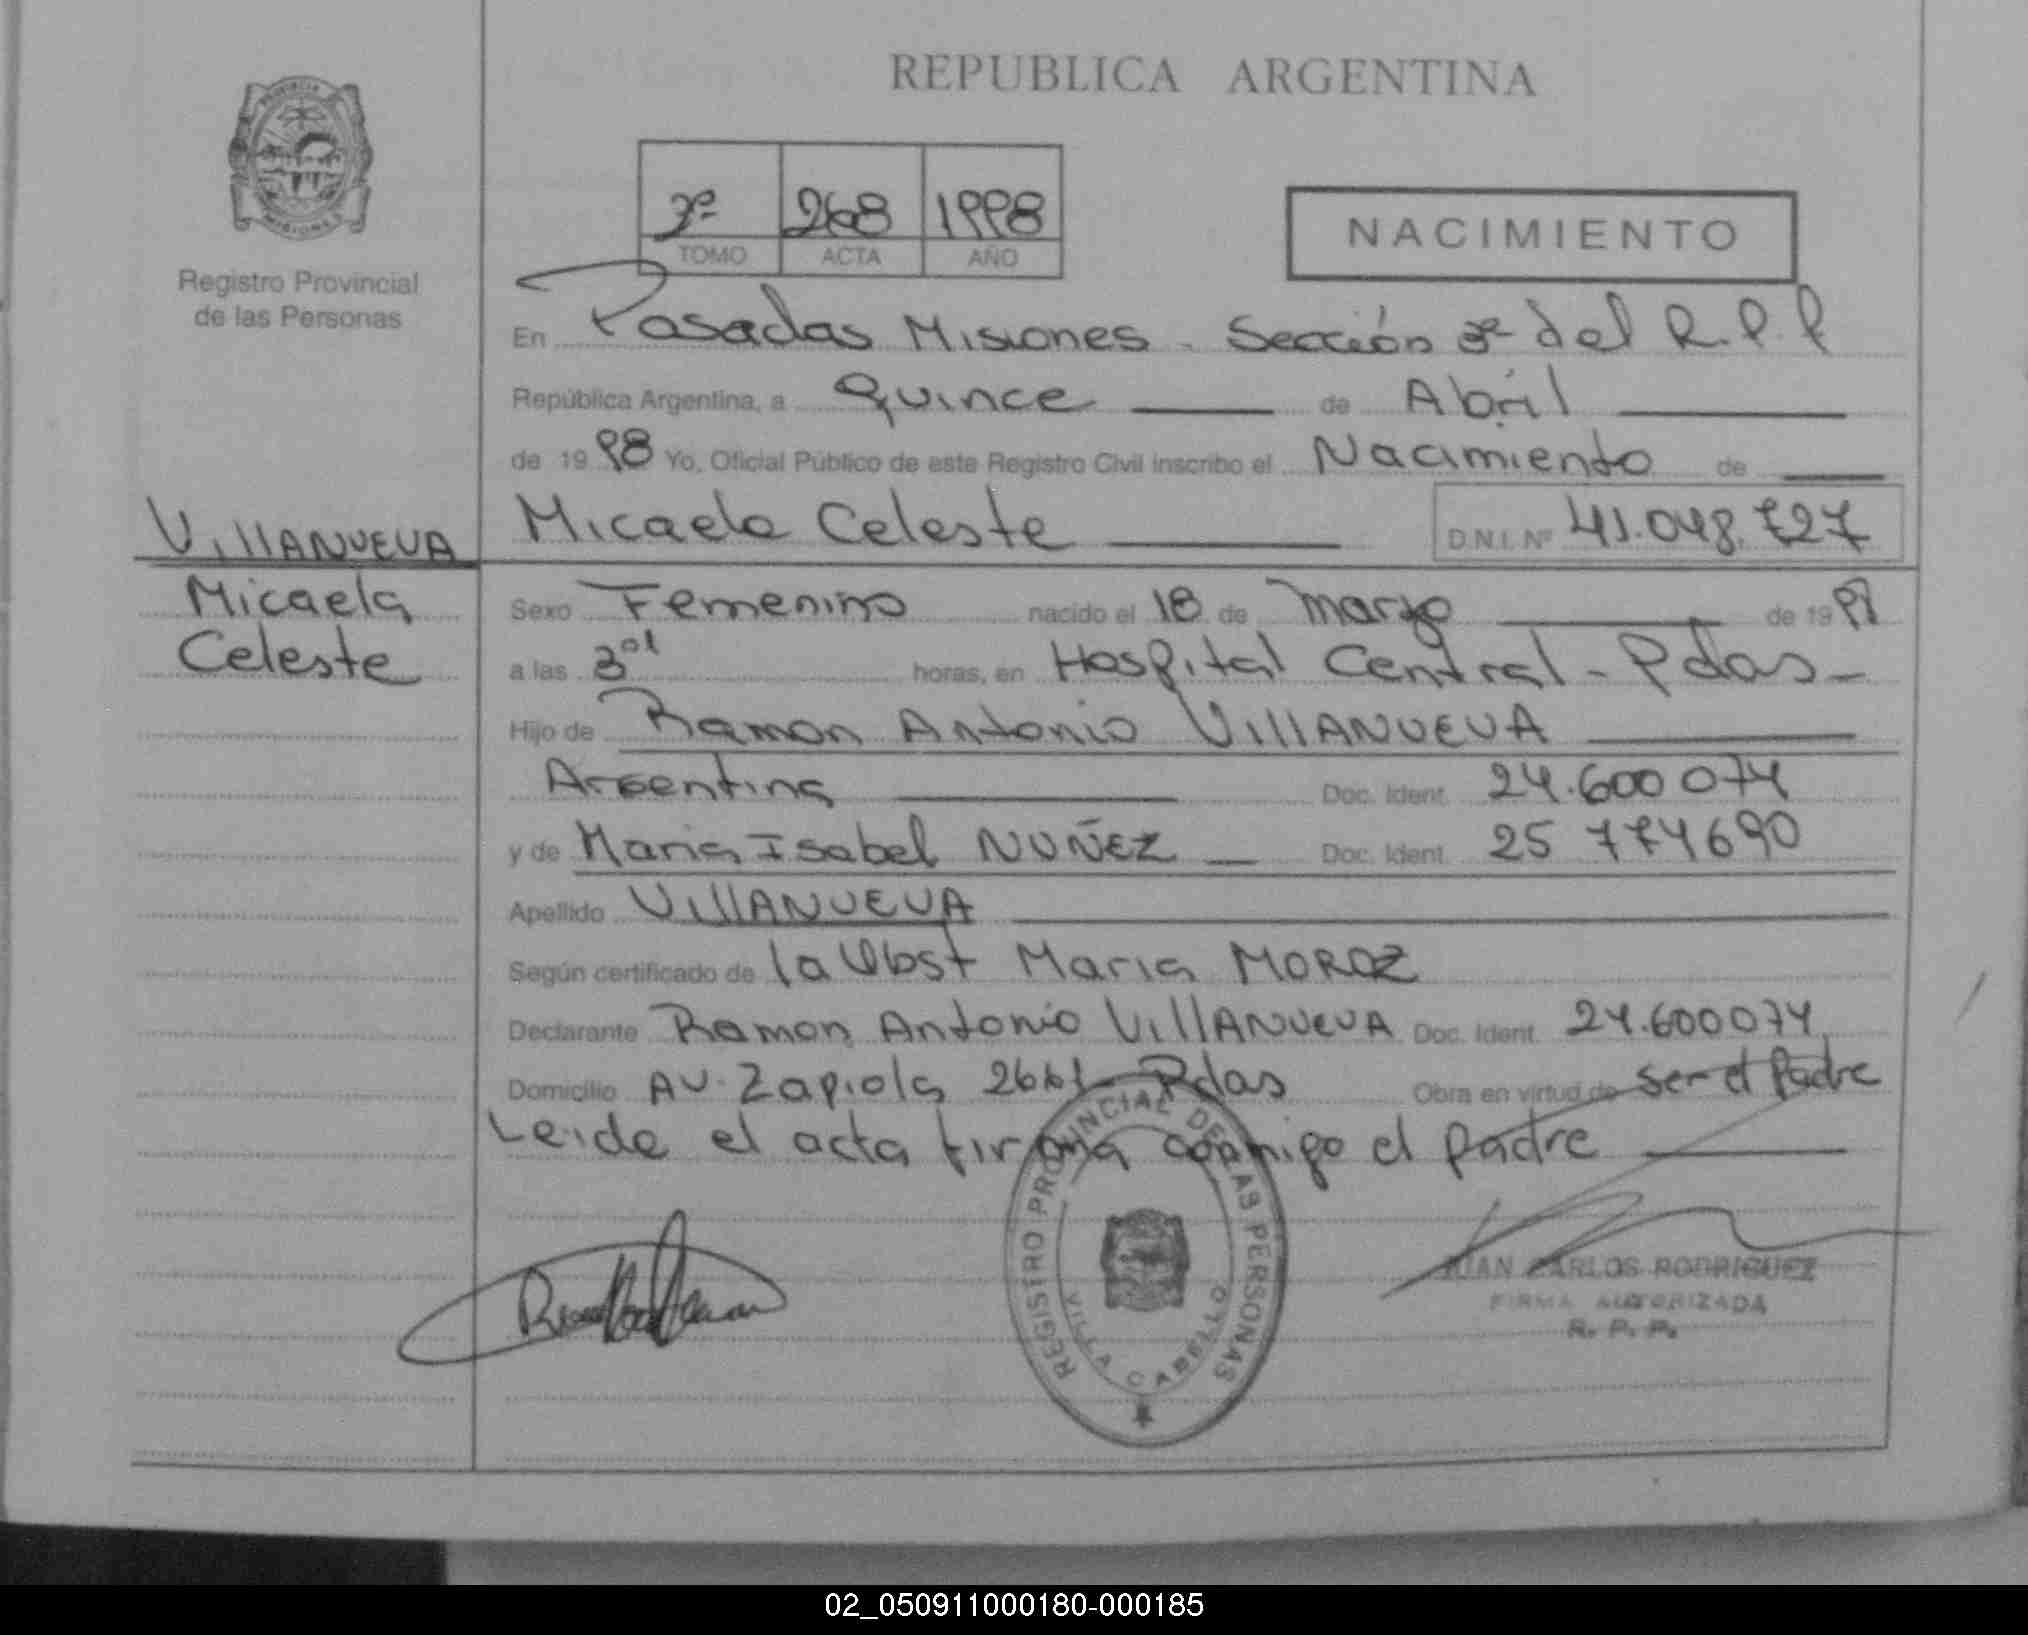 REPUBLICA ARGENTINA
PROVINCIA
MISIONES
Registro Provincial
de las Personas
268 1998
TOMO ACTA AÑO
NACIMIENTO
En Posadas Misiones - Sección 3ª del R.P.P
República Argentina, a Quince de Abril
de 1998 Yo, Oficial Público de este Registro Civil inscribo el Nacimiento de
VILLANUEVA Micaela Celeste D.N.I. Nº 41.048.727
Micaela
Celeste
Sexo Femenino nacido el 18 de marzo de 19
a las horas, en Hospital Central - Pdas -
Hijo de Ramon Antonio VILLANUEVA
Argentina Doc. Ident. 24.600 074
y de Maria Isabel NUÑEZ Doc. Ident. 25 774690
Apellido VILLANUEVA
Según certificado de la Obst Maria MOROZ
Declarante Ramon Antonio VILLANUEVA Doc. Ident. 24.600074
Domicilio AV. Zapiola 2661 - Pdas Obra en virtud de ser el Padre
Leida el acta firma conmigo el padre
REGISTRO PROVINCIAL DE LAS PERSONAS
VILLA CABELLO
JUAN CARLOS RODRIGUEZ
FIRMA AUTORIZADA
R. P. P.
02_050911000180-000185